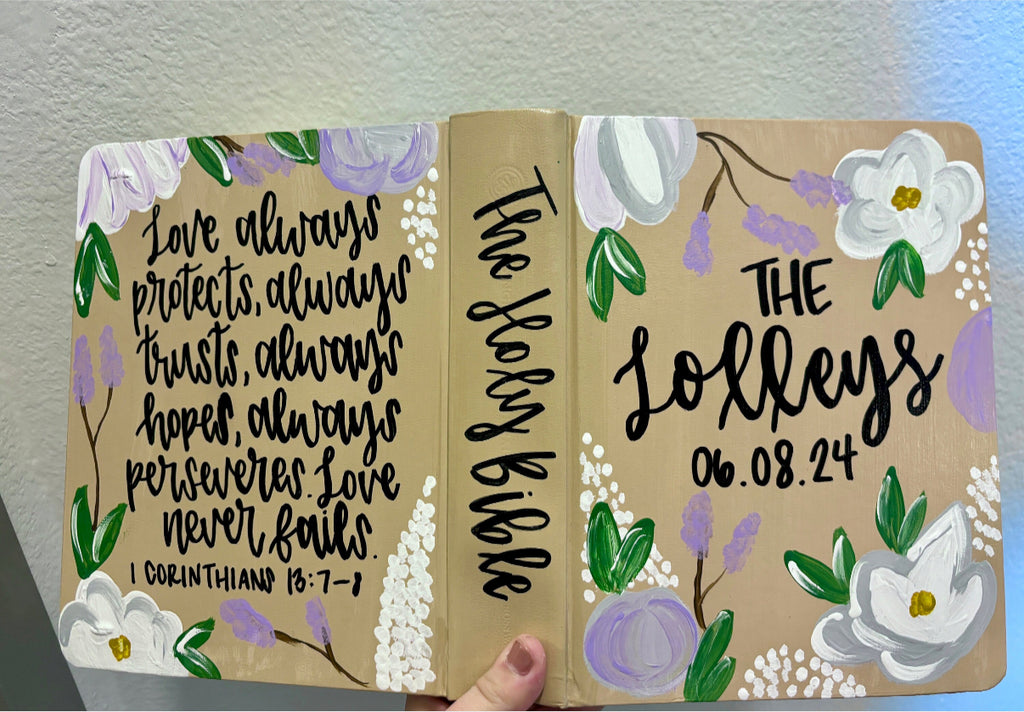 Love always
protects, always
trusts, always
hopes, always
perseveres. Love
never fails.
1 CORINTHIANS 13:7-8
The Holy Bible
THE
Lolleys
06.08.24